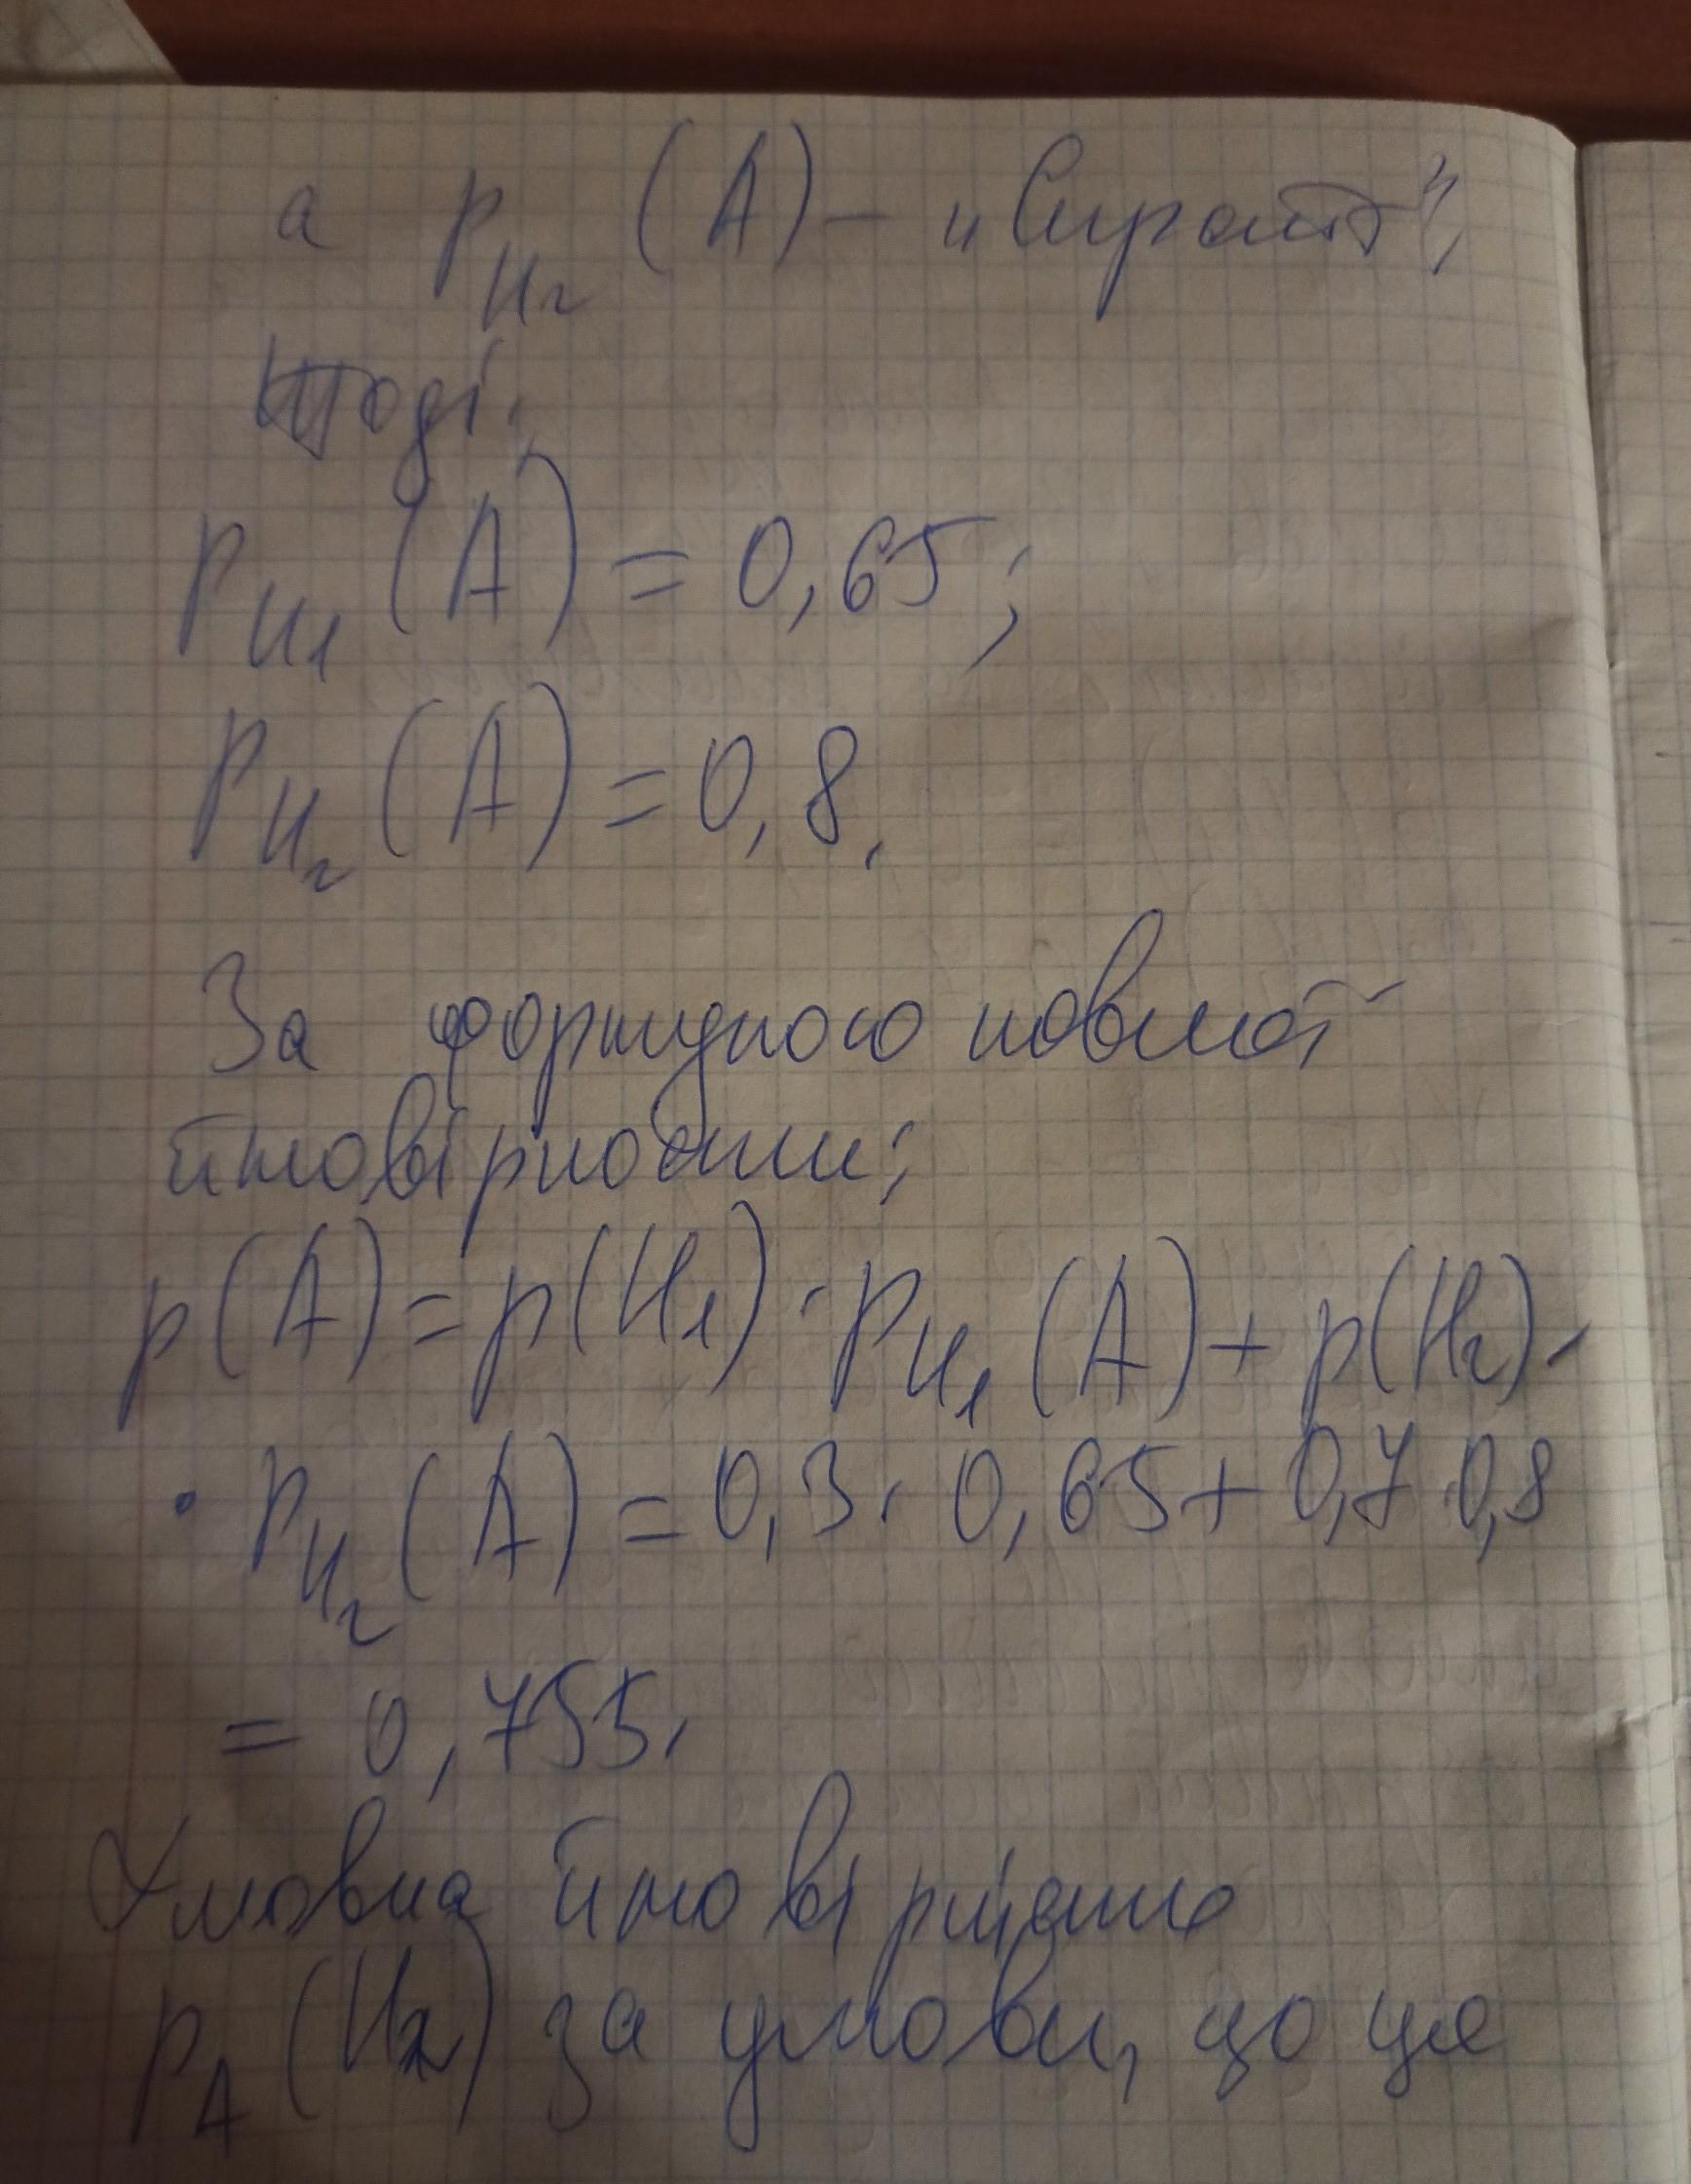 а p_H₂ (A) – „Спрайт",
тоді:
P_H₁ (A) = 0,65;
P_H₂ (A) = 0,8.
За формулою повної
ймовірности:
p(A) = p(H₁) · P_H₁ (A) + p(H₂) ·
· P_H₂ (A) = 0,3 · 0,65 + 0,7 · 0,8
= 0,755.
Умовна ймовірність
p_A (H₂) за умови, що це